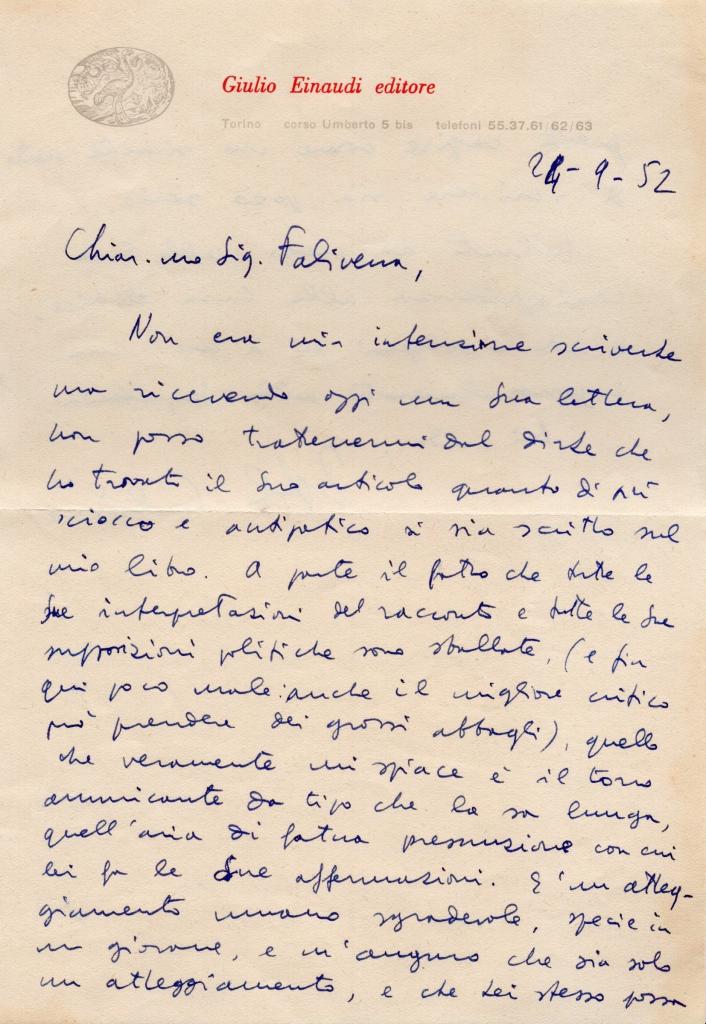 Giulio Einaudi editore
Torino corso Umberto 5 bis telefoni 55.37.61/62/63
24-9-52
Chiar.mo Sig. Falivena,
Non era mia intenzione scriverLe
ma ricevendo oggi una Sua lettera,
non posso trattenermi dal dirLe che
ho trovato il Suo articolo quanto di più
sciocco e antipatico si sia scritto sul
mio libro. A parte il fatto che tutte le
Sue interpretazioni del racconto e tutte le Sue
supposizioni politiche sono sballate, (e fin
qui poco male: anche il migliore critico
può prendere dei grossi abbagli), quello
che veramente mi spiace è il tono
ammiccante da tipo che la sa lunga,
quell'aria di fatua presunzione con cui
lei fa le Sue affermazioni. E' un atteg-
giamento umano sgradevole, specie in
un giovane, e m'auguro che sia solo
un atteggiamento, e che Lei stesso possa